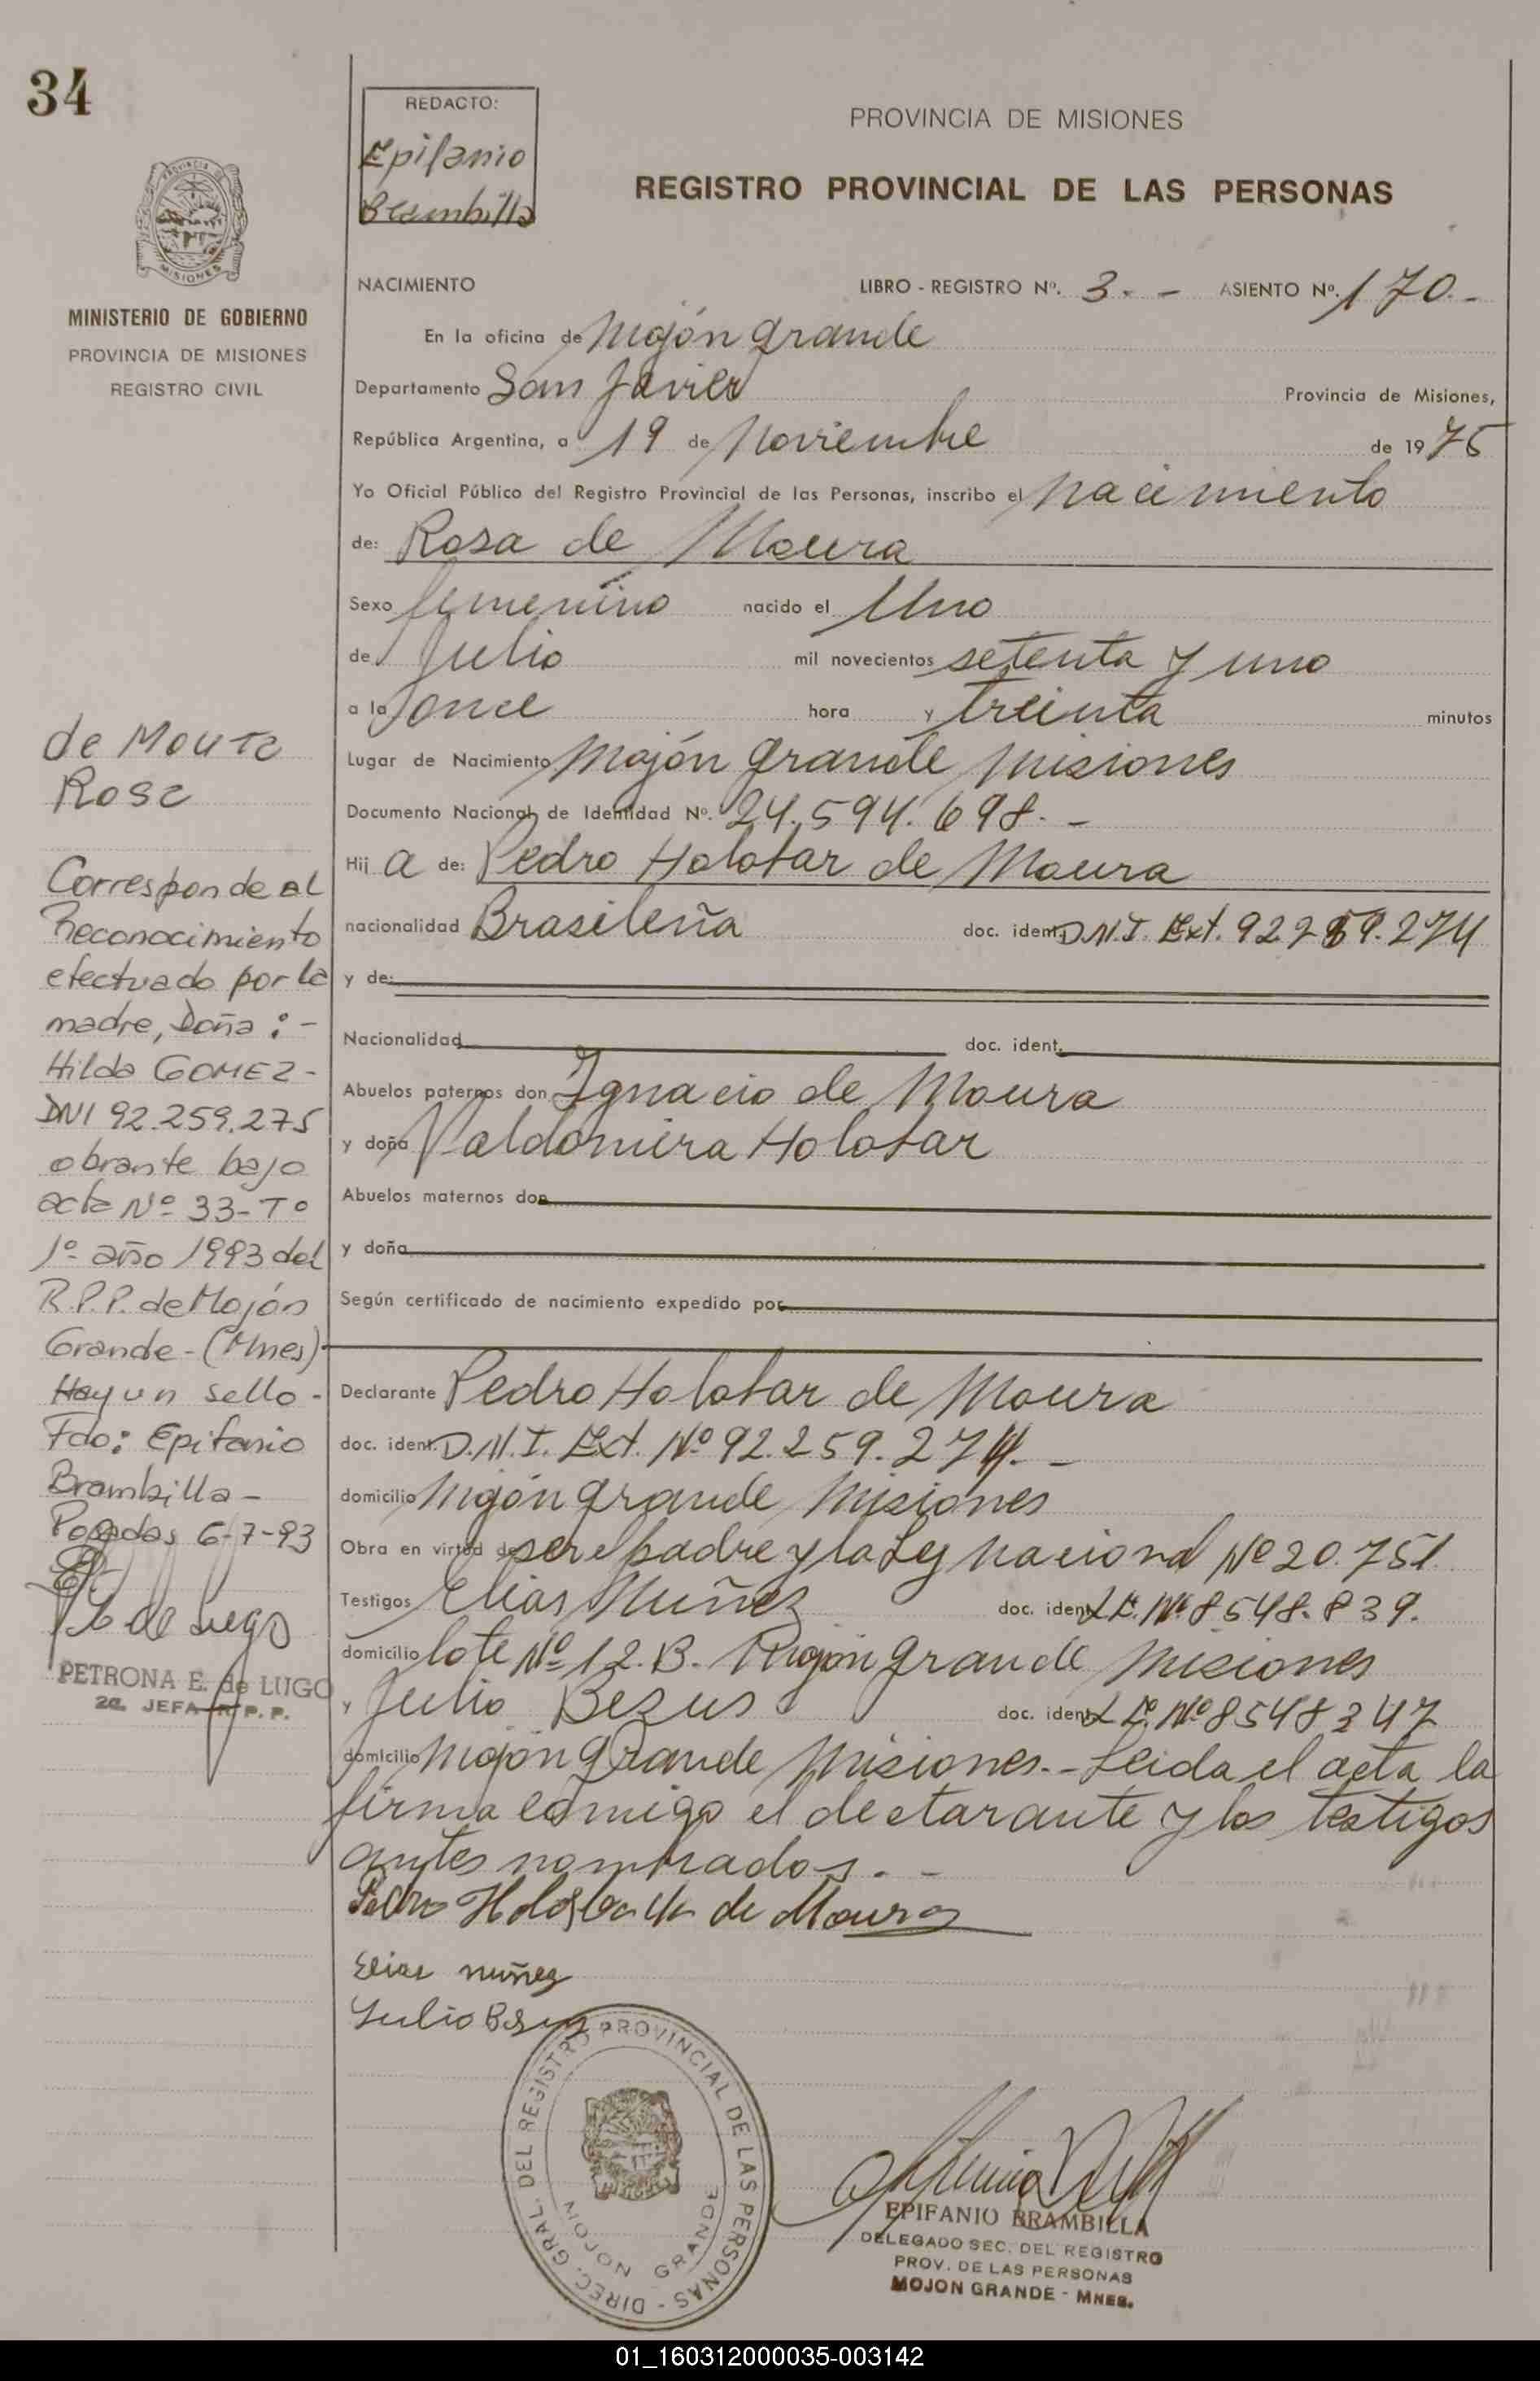 34
REDACTO:
Epifanio
Brambilla
PROVINCIA DE MISIONES
REGISTRO PROVINCIAL DE LAS PERSONAS
PROVINCIA DE
MISIONES
MINISTERIO DE GOBIERNO
PROVINCIA DE MISIONES
REGISTRO CIVIL
NACIMIENTO LIBRO - REGISTRO Nº. 3.- - ASIENTO Nº. 170.-
En la oficina de Mojón grande
Departamento San Javier Provincia de Misiones,
República Argentina, a 19 de Noviembre de 1975
Yo Oficial Público del Registro Provincial de las Personas, inscribo el nacimiento
de: Rosa de Moura
Sexo femenino nacido el Uno
de Julio mil novecientos setenta y uno
a la once hora y treinta minutos
Lugar de Nacimiento Mojón grande Misiones
Documento Nacional de Identidad Nº. 24.594.698.-
Hij a de: Pedro Holobar de Moura
nacionalidad Brasileña doc. ident. D.N.I. Ext. 92.259.274
y de:
Nacionalidad doc. ident.
Abuelos paternos don Ignacio de Moura
y doña Valdomira Holobar
Abuelos maternos don
y doña
Según certificado de nacimiento expedido por
Declarante Pedro Holobar de Moura
doc. ident. D.N.I. Ext. Nº 92.259.274.-
domicilio Mojón grande Misiones
Obra en virtud de ser el padre y la Ley nacional Nº 20.751
Testigos Elias Nuñez doc. ident. L.E. Nº 8548.839.
domicilio lote Nº 12.B. Mojón grande Misiones
y Julio Bezus doc. ident. L.E. Nº 8548347
domicilio Mojón grande Misiones.- Leida el acta la
firma comigo el declarante y los testigos
antes nombrados.-
de Moura
Rosa
Corresponde al
Reconocimiento
efectuado por la
madre, Doña: -
Hilda GOMEZ-
DNI 92.259.275
obrante bajo
acta Nº 33-Tº
1º año 1993 del
R.P.P. de Mojón
Grande-(Mnes)-
Hay un sello-
Fdo: Epifanio
Brambilla-
Posadas 6-7-93
de Lugo
PETRONA E. de LUGO
2a. JEFA R.P.P.
Pedro de Moura
Elias nuñez
Julio Bezus
DIREC. GRAL. DEL REGISTRO PROVINCIAL DE LAS PERSONAS -
MOJON GRANDE
EPIFANIO BRAMBILLA
DELEGADO SEC. DEL REGISTRO
PROV. DE LAS PERSONAS
MOJON GRANDE - MNES.
01_160312000035-003142